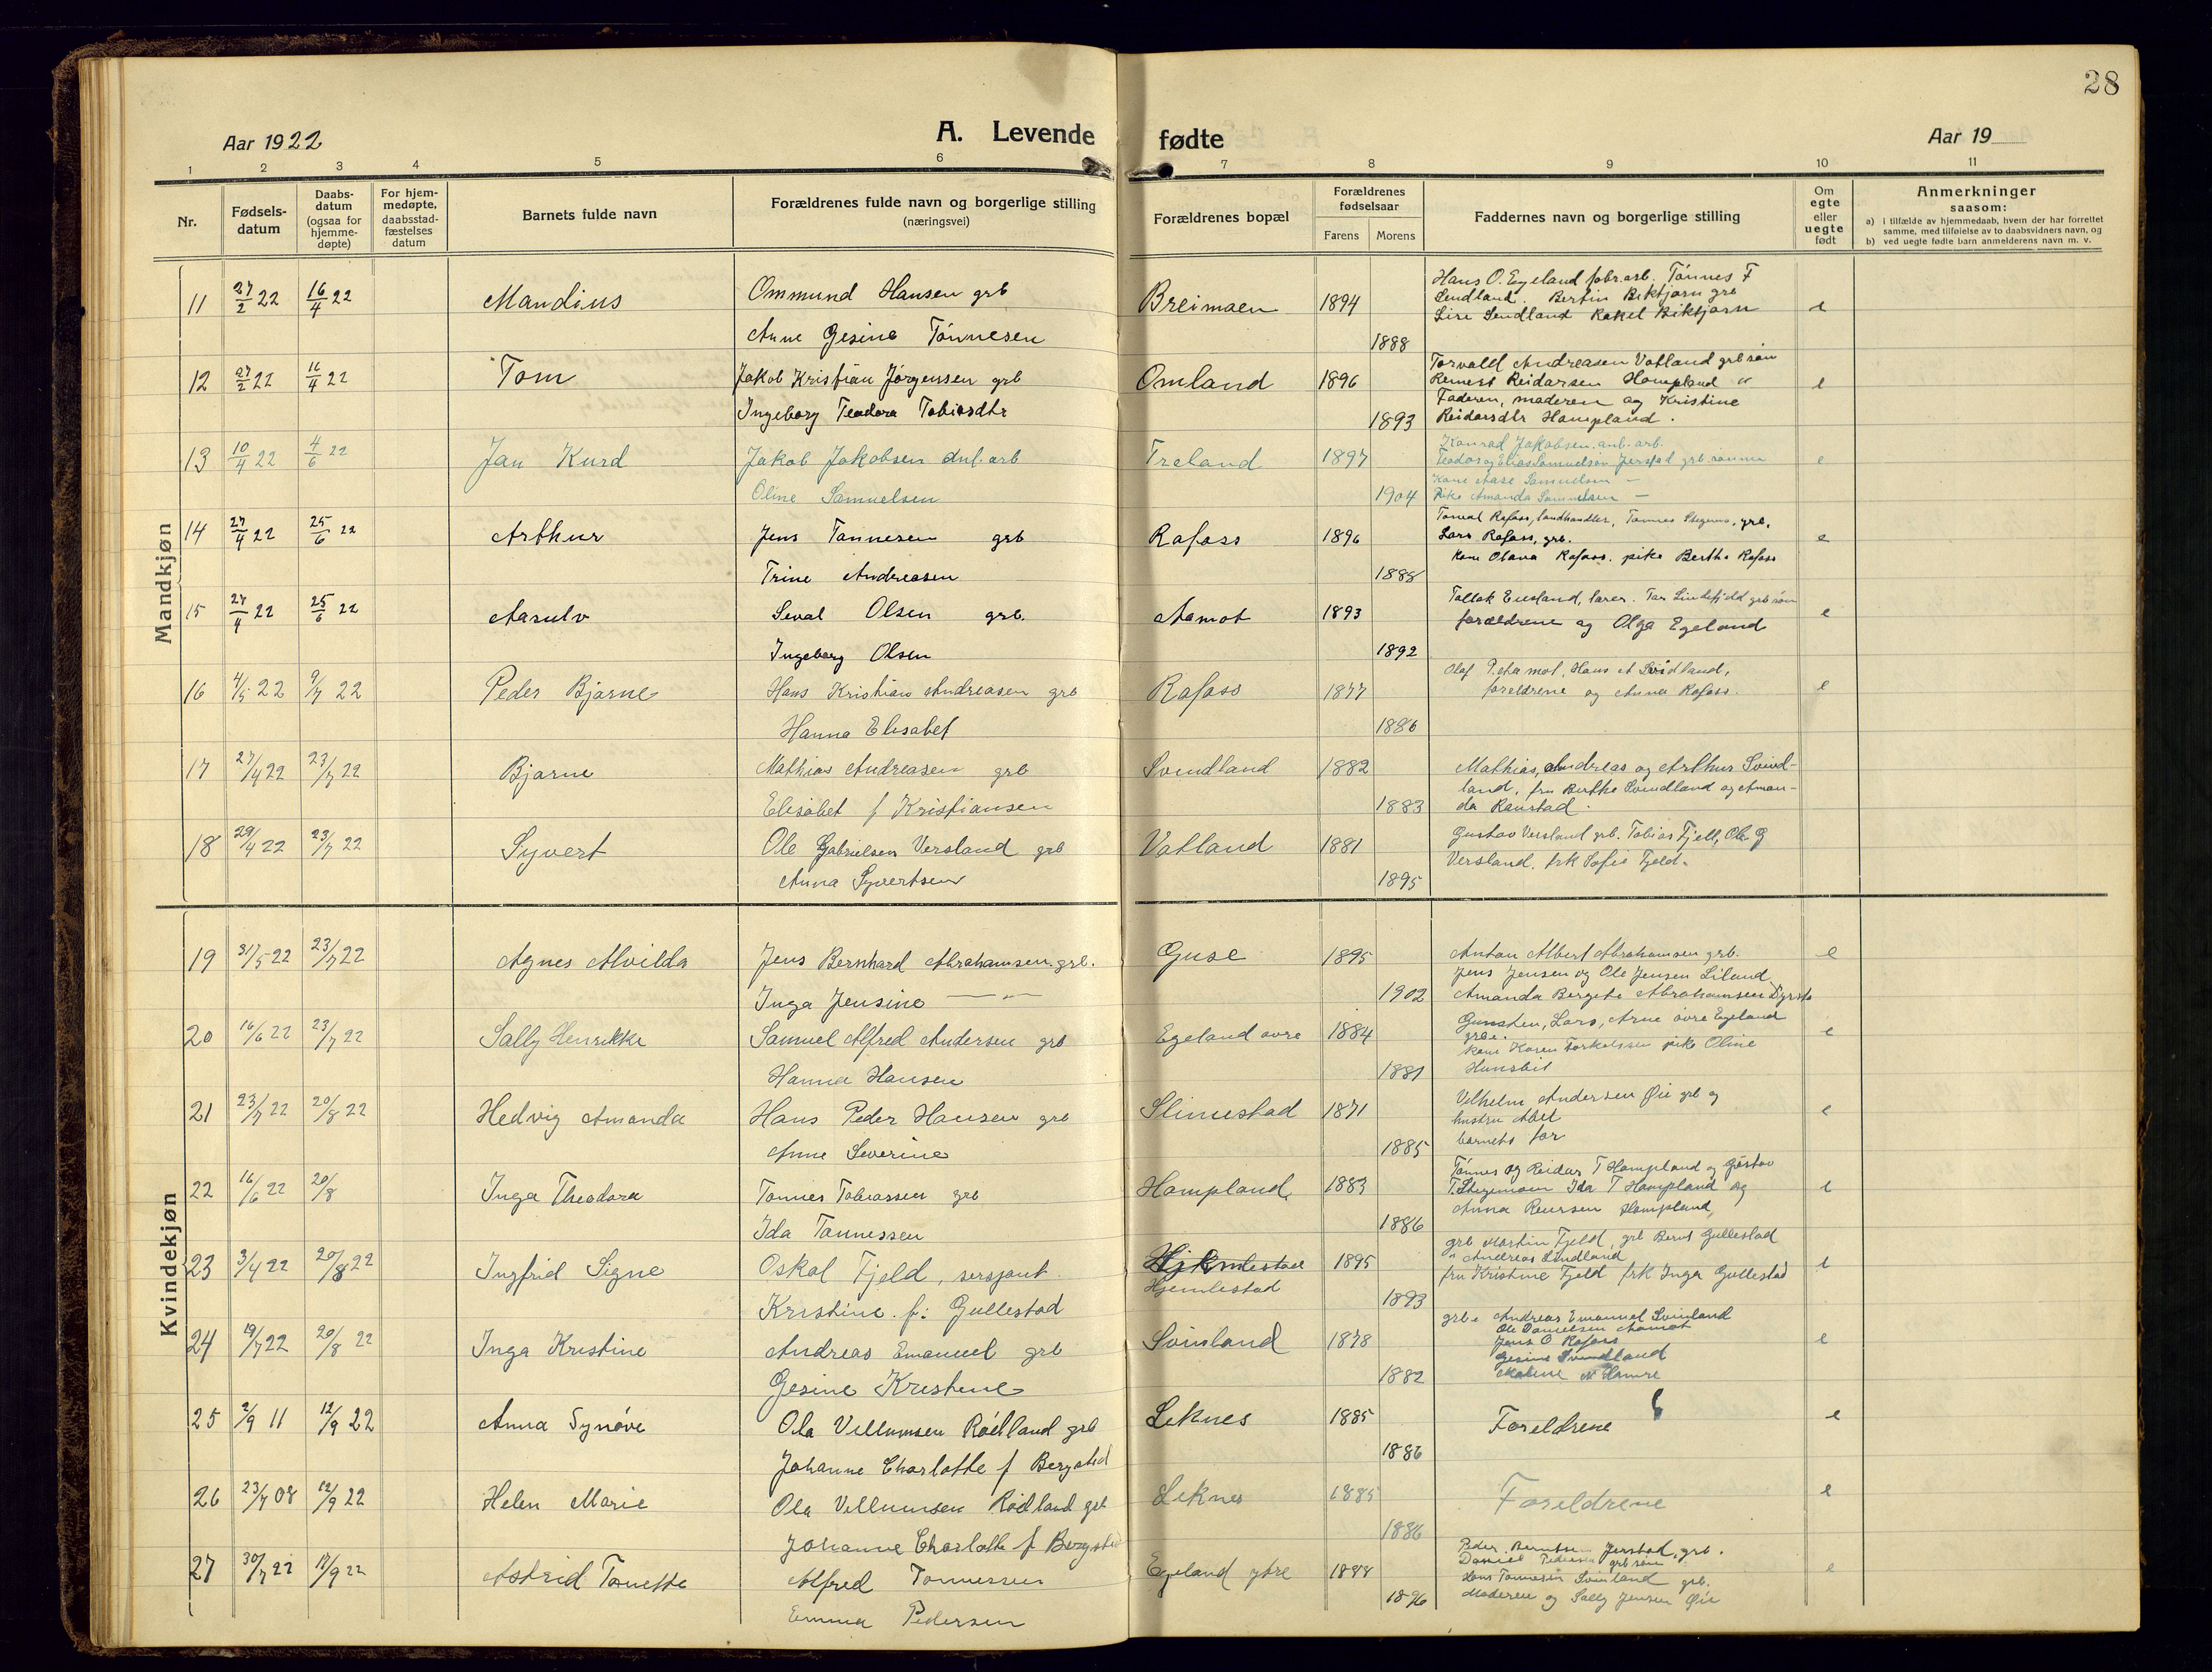 28
Aar 1922
A. Levende
fødte
Aar 19
1 2 3 4 5 6 7 8 9 10 11
Nr.
Fødsels-
datum
Daabs-
datum
(ogsaa for
hjemme-
døpte)
For hjem-
medøpte,
daabsstad-
fæstelses
datum
Barnets fulde navn
Forældrenes fulde navn og borgerlige stilling
(næringsvei)
Forældrenes bopæl
Forældrenes
fødselsaar
Farens Morens
Faddernes navn og borgerlige stilling
Om
egte
eller
uegte
født
Anmerkninger
saasom:
a) i tilfælde av hjemmedaab, hvem der har forrettet
samme, med tilføielse av to daabsvidners navn, og
b) ved uegte fødte barn anmelderens navn m. v.
Mandkjøn
11 27/2 22 16/4 22 Mandius Ommund Hansen grb Breimoen 1894 e
Anne Gesine Tönnesen 1888
Hans O. Egeland fabr.arb. Tönnes F
Sendland. Bertin Birktjørn grb
Lise Sendland Rakel Birktjørn
12 27/2 22 16/4 22 Tom Jakob Kristian Jørgensen grb Omland 1896 e
Ingeborg Teodora Tobiasdtr 1893
Torvald Andreasen Vatland grb søn
Reinert Reidarsen Hompland "
Faderen, moderen og Kristine
Reidarsdtr Hompland.
13 10/4 22 4/6 22 Jan Kurd Jakob Jakobsen anl. arb Treland 1897 e
Oline Samuelsen 1904
Konrad Jakobsen. anl. arb.
Teodor og Elias Samuelsen Jerstad grb.sønner
Kone Aase Samuelsen —
Pike Amanda Samuelsen —
14 27/4 22 25/6 22 Arthur Jens Tønnesen grb Rafoss 1896 e
Trine Andreasen 1888
Tomal Rafoss, landhandler, Tønnes Stegemo, grb,
Lars Rafoss, grb.
Kone Olava Rafoss. pike Bertha Rafoss
15 27/4 22 25/6 22 Aasulv Seval Olsen grb. Aamot 1893 e
Ingeborg Olsen 1892
Tollak Eusland, lærer. Tar Lindefjeld grb søn
forældrene og Olga Egeland
16 4/5 22 9/7 22 Peder Bjarne Hans Kristian Andreasen grb Rafoss 1877 e
Hanna Elisabet 1886
Olaf P. Aamot, Hans A Svidland,
foreldrene og Anna Rafoss.
17 27/4 22 23/7 22 Bjarne Mathias Andreasen grb Svindland 1882
Elisabet f Kristiansen 1883
Mathias, Andreas og Arthur Svind-
land, fru Berthe Svindland og Aman-
da Raustad.
18 29/4 22 23/7 22 Syvert Ole Gabrielsen Versland grb Vatland 1881
Anna Syvertsen 1895
Gustav Versland grb. Tobias Fjell, Ole G
Versland. frk Sofie Fjeld.
Kvindekjøn
19 31/5 22 23/7 22 Agnes Alvilda Jens Bernhard Abrahamsen grb. Guse 1895 e
Inga Jensine — " — 1902
Anton Albert Abrahamsen grb.
Jens Jensen og Ole Jensen Liland
Amanda Bergete Abrahamsen Dyrsta
20 16/6 22 23/7 22 Sally Henrikke Samuel Alfred Andersen grb Egeland øvre 1884 e
Hanna Hansen 1881
Gunsten, Lars, Arne øvre Egeland
grb.
kone Karen Torkelssen pike Oline
Hunsbit
21 23/7 22 20/8 22 Hedvig Amanda Hans Peder Hansen grb Slimestad 1871 e
Anne Severine 1885
Vilhelm Andersen Øie grb og
hustru Abel
barnets far
22 16/6 22 20/8 Inga Theodora Tønnes Tobiassen grb Hompland 1883 e
Ida Tønnessen 1886
Tönnes og Reidar T Hompland og Göstav
T. Stegemoen Ida T Hompland og
Anna Reiersen Hompland,
23 3/4 22 20/8 22 Ingfrid Signe Oskal Fjeld, sersjant. Hjemlestad 1895 e
Kristine f: Gullestad Hjemlestad 1893
grb Martin Fjeld, grb Bernt Gullestad
" Andreas Lindland
fru Kristine Fjeld frk Inga Gullestad
24 19/7 22 20/8 22 Inga Kristine Andreas Emanuel grb Svinland 1878 e
Gesine Kristine 1882
grb. Andreas Emanuel Svinland
Ole Danielsen Aamot
Jens O Rafoss
Gesine Svindland
Maline N Hamre
25 2/9 11 12/9 22 Anna Synøve Ola Villumsen Röilland grb Leknes 1885 e
Johanne Charlotte f Bergstad 1886
Foreldrene
26 23/7 08 12/9 22 Helen Marie Ola Villumsen Röilland grb Leknes 1885 e
Johanne Charlotte f Bergstad 1886
Foreldrene
27 30/7 22 17/9 22 Astrid Tonette Alfred Tønnessen Egeland ytre 1888 e
Emma Pedersen 1896
Peder Berntsen Jerstad, grb.
Daniel Pedersen grb søn
Hans Tønnesen Svinland grb.
Moderen og Sally Jensen Øie